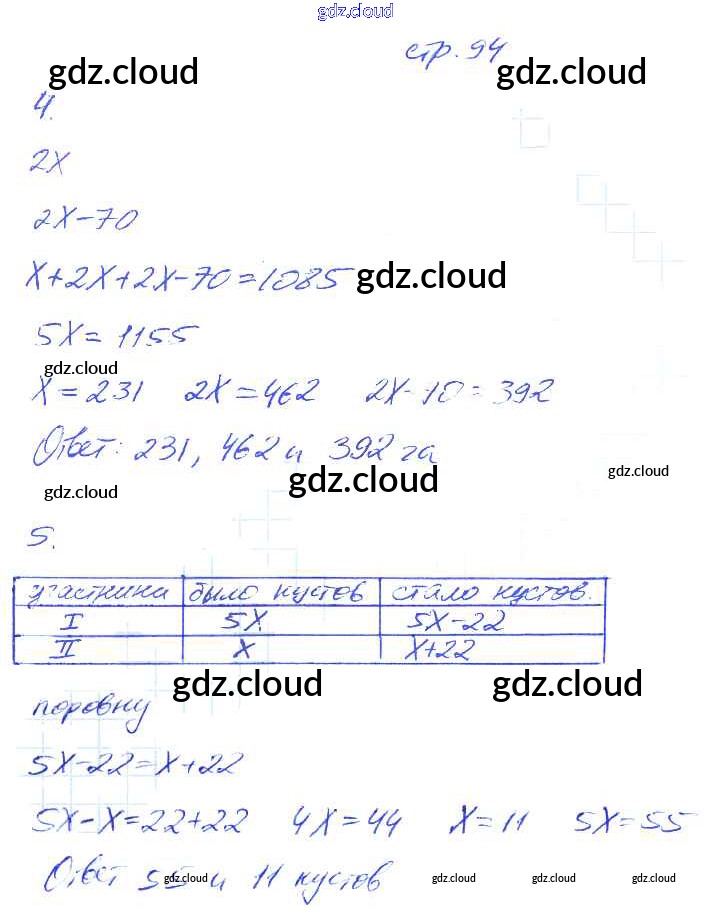 gdz.cloud
стр. 94
gdz.cloud gdz.cloud
4.
2x
2x-70
x+2x+2x-70=1085 gdz.cloud
5x=1155
gdz.cloud
x=231 2x=462 2x-10=392
Ответ: 231, 462 и 392 га
gdz.cloud gdz.cloud gdz.cloud
5.
участники было кустов стало кустов.
I 5x 5x-22
II x x+22
gdz.cloud gdz.cloud
поровну
5x-22=x+22
5x-x=22+22 4x=44 x=11 5x=55
Ответ 55 и 11 кустов
gdz.cloud gdz.cloud gdz.cloud gdz.cloud